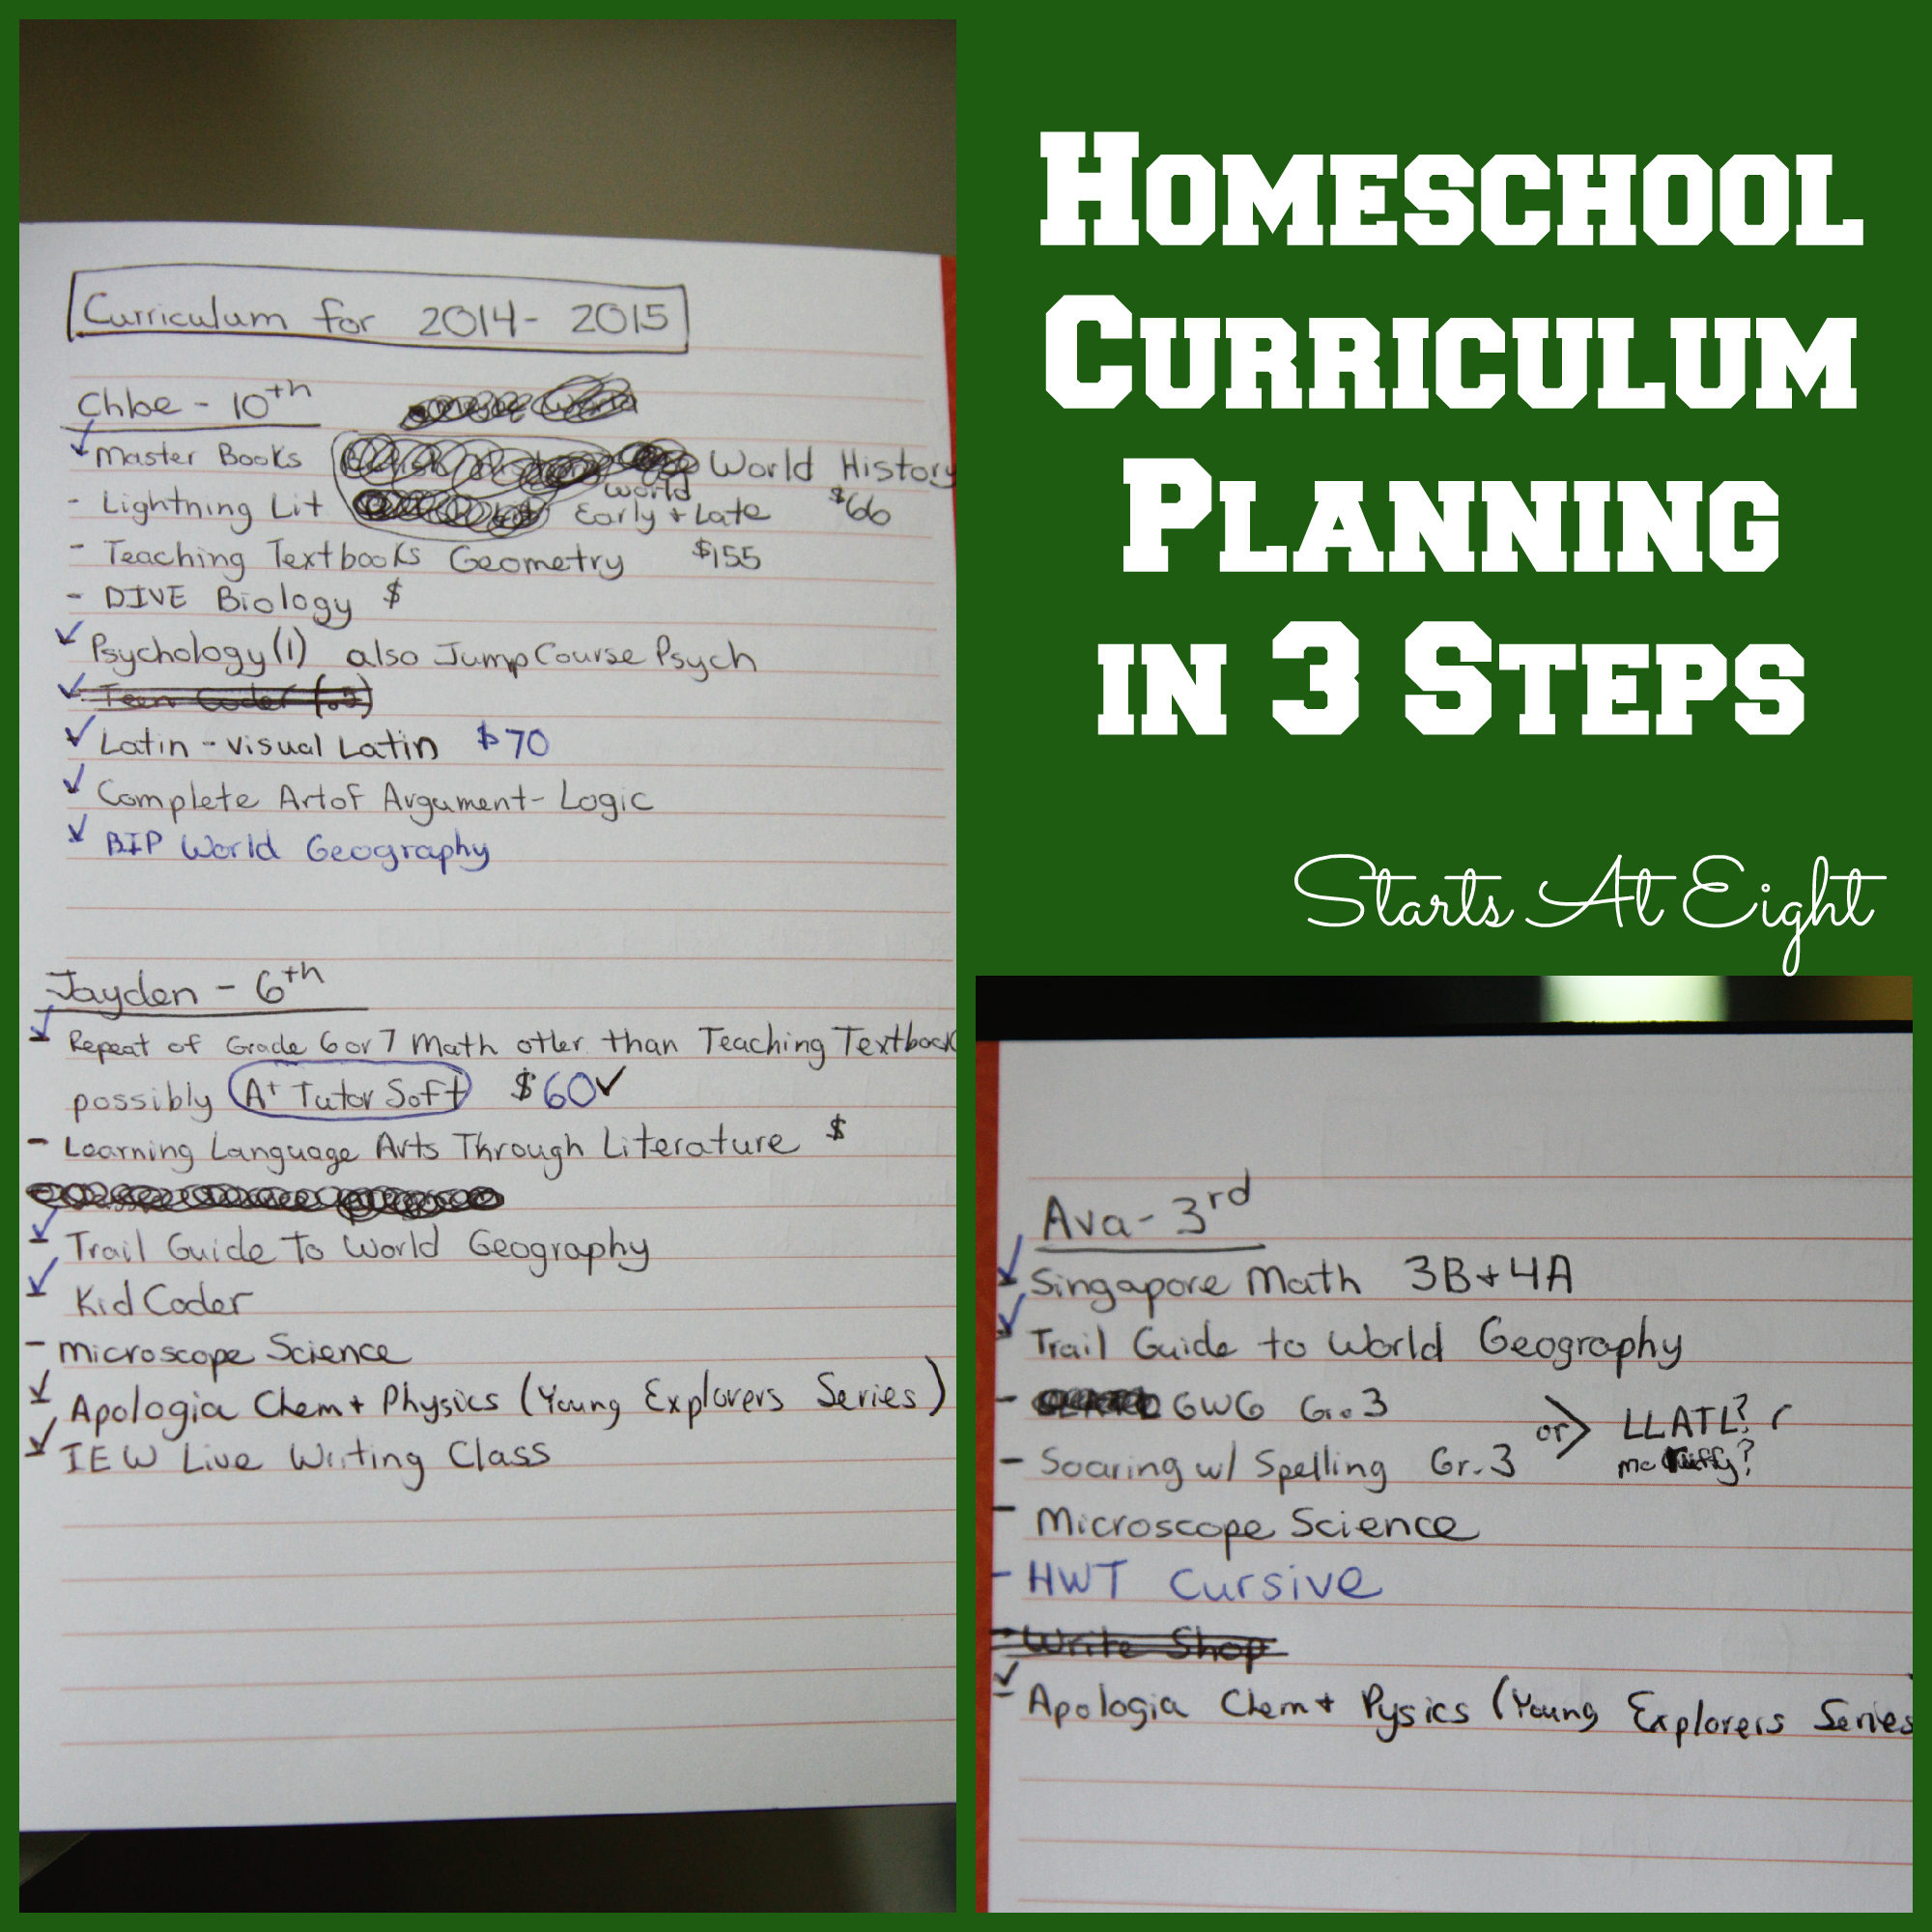 Curriculum for 2014-2015
Chloe - 10th
Master Books World History
- Lightning Lit World Early + Late $66
- Teaching Textbooks Geometry $155
- DIVE Biology $
Psychology (1) also Jump Course Psych
Teen Coder (.5)
Latin - visual Latin $70
Complete Art of Argument - Logic
BIP World Geography
Jayden - 6th
Repeat of Grade 6 or 7 Math other than Teaching Textbook
possibly A+ Tutor Soft $60
- Learning Language Arts Through Literature $
Trail Guide to World Geography
Kid Coder
- Microscope Science
Apologia Chem + Physics (Young Explorers Series)
IEW Live Writing Class
Homeschool
Curriculum
Planning
in 3 Steps
Starts At Eight
Ava - 3rd
Singapore Math 3B + 4A
Trail Guide to World Geography
- GWG Gr. 3
or > LLATL?
- Soaring w/ Spelling Gr. 3
mcGuffy?
- Microscope Science
- HWT Cursive
- Write Shop
Apologia Chem + Pysics (Young Explorers Series